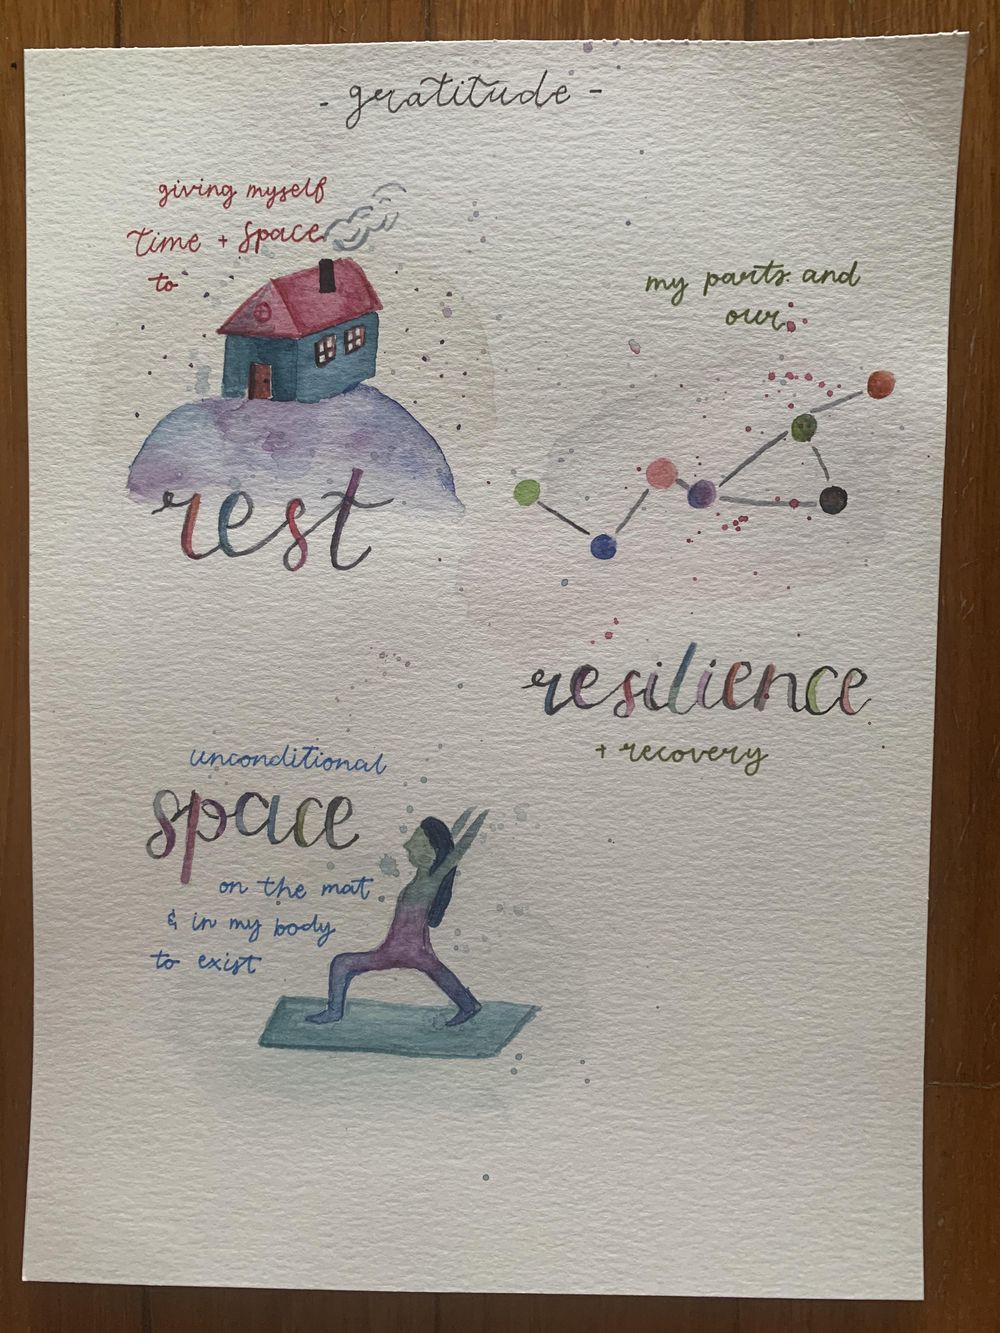 - gratitude -
giving myself
time + space
to
rest
my parts and
our
resilience
+ recovery
unconditional
space
on the mat
& in my body
to exist